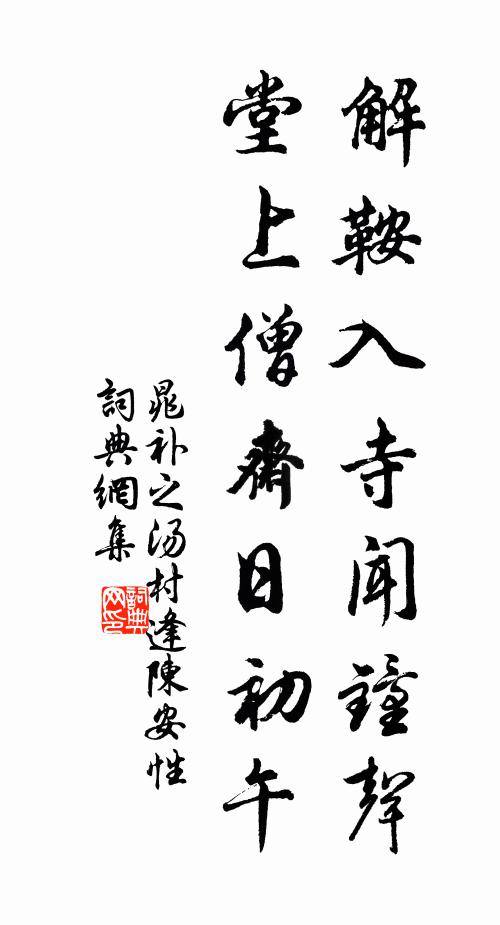 解鞍入寺聞鐘聲
堂上僧齋日初午
晁补之汤村逢陳安性
詞典網集
詞典网印